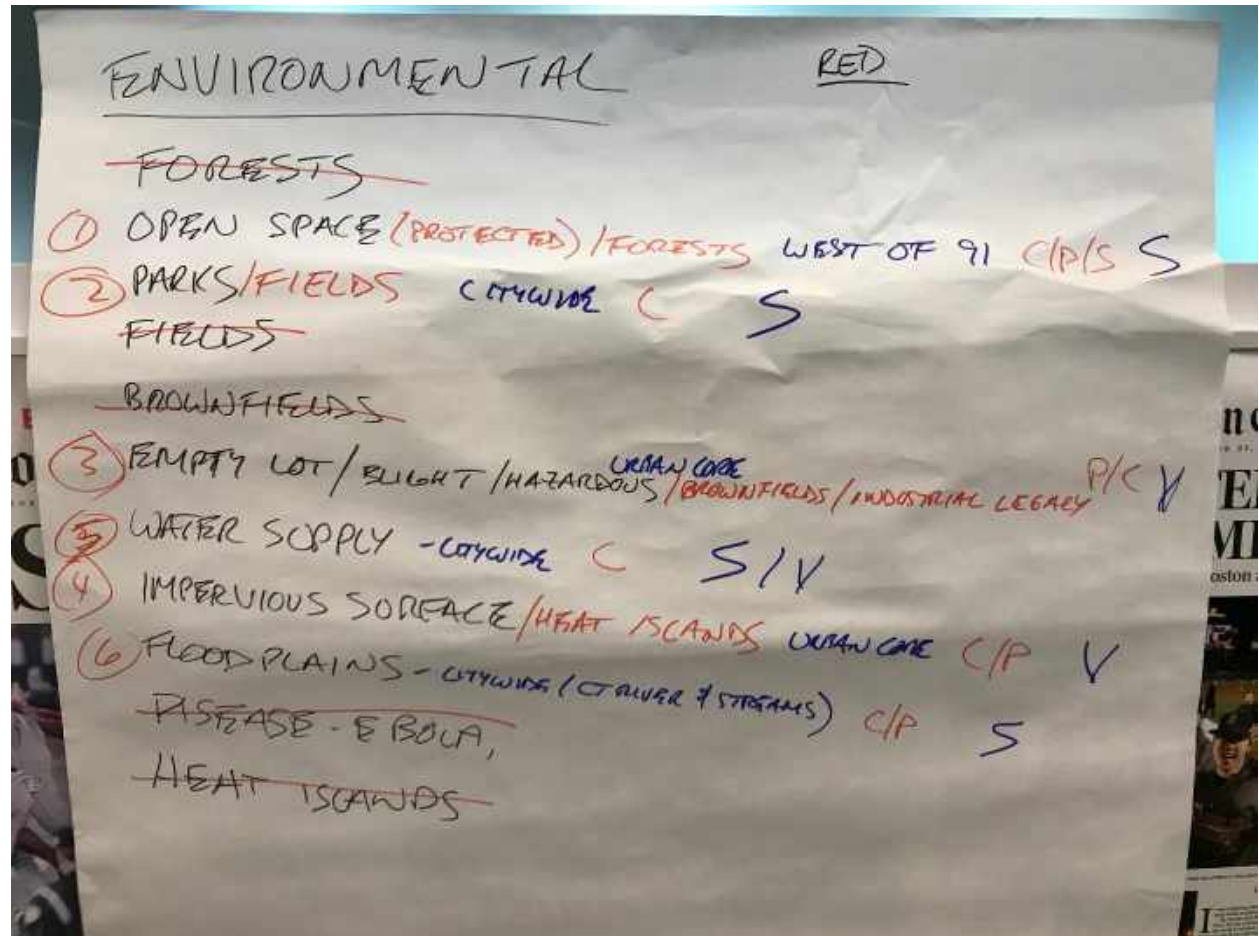 ENVIRONMENTAL RED
FORESTS
1 OPEN SPACE (PROTECTED) / FORESTS WEST OF 91 C/P/S S
2 PARKS/FIELDS CITYWIDE C S
FIELDS
BROWNFIELDS
3 EMPTY LOT / BLIGHT / HAZARDOUS / BROWNFIELDS / INDUSTRIAL LEGACY URBAN CORE P/C V
5 WATER SUPPLY - CITYWIDE C S/V
4 IMPERVIOUS SURFACE / HEAT ISLANDS URBAN CORE C/P V
6 FLOODPLAINS - CITYWIDE (CT RIVER & STREAMS) C/P S
DISEASE - EBOLA,
HEAT ISLANDS